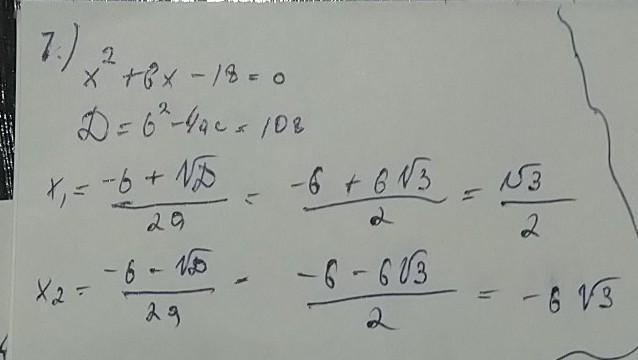 7.)
x² + 6x - 18 = 0
D = b² - 4ac = 108
x₁ = (-b + √D)/(2a) = (-6 + 6√3)/2 = √3/2
x₂ = (-b - √D)/(2a) - (-6 - 6√3)/2 = -6√3